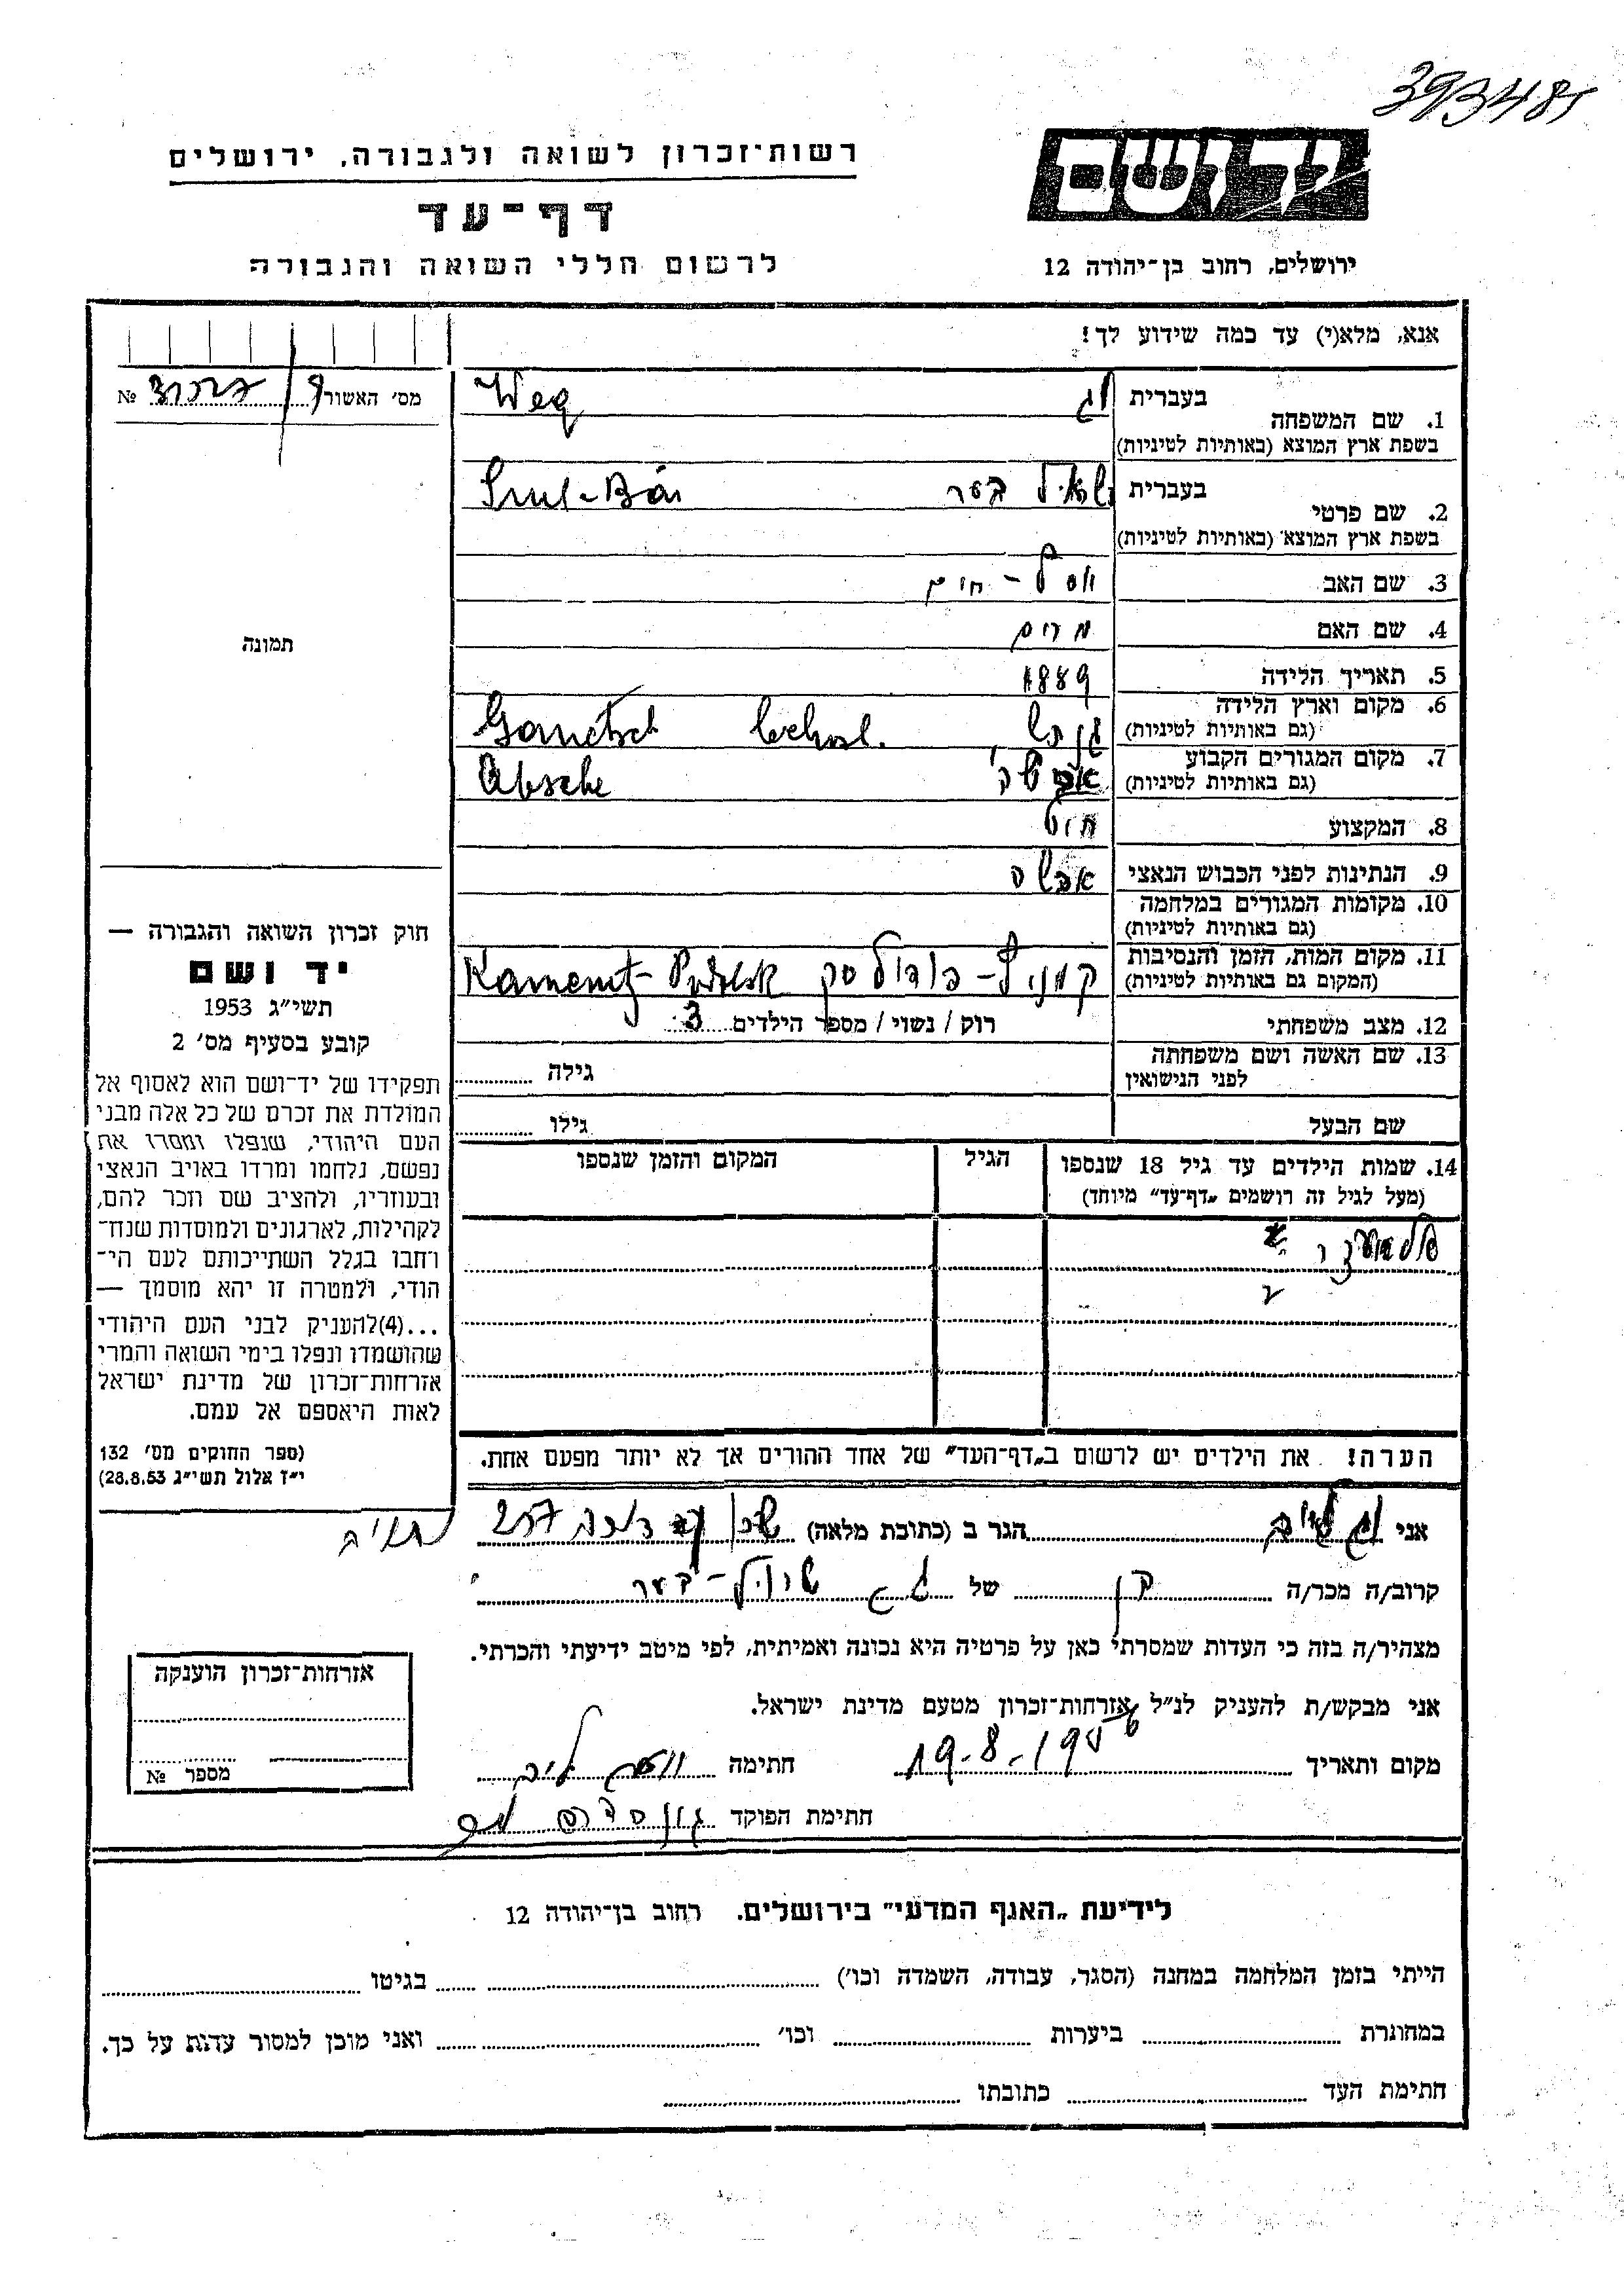 393481
רשות־זכרון לשואה ולגבורה, ירושלים
דף־עד
לרשום חללי השואה והגבורה
יד ושם
ירושלים, רחוב בן־יהודה 12
אנא, מלא(י) עד כמה שידוע לך!
מס' האשור
№
תמונה
1. שם המשפחה
בעברית
בשפת ארץ המוצא (באותיות לטיניות)
Weg
2. שם פרטי
בעברית
בשפת ארץ המוצא (באותיות לטיניות)
בער
Srul-Bär
3. שם האב
חיים
4. שם האם
מרים
5. תאריך הלידה
1889
6. מקום וארץ הלידה
(גם באותיות לטיניות)
7. מקום המגורים הקבוע
(גם באותיות לטיניות)
Absche
8. המקצוע
9. הנתינות לפני הכבוש הנאצי
אבשה
10. מקומות המגורים במלחמה
(גם באותיות לטיניות)
11. מקום המות, הזמן והנסיבות
(המקום גם באותיות לטיניות)
קמניץ־פודולסק Kamenitz-Podolsk
12. מצב משפחתי
רוק / נשוי / מספר הילדים 3
13. שם האשה ושם משפחתה
לפני הנישואין
גילה
שם הבעל
גילו
14. שמות הילדים עד גיל 18 שנספו
(מעל לגיל זה רושמים „דף־עד" מיוחד)
הגיל
המקום והזמן שנספו
הערה! את הילדים יש לרשום ב„דף־העד" של אחד ההורים אך לא יותר מפעם אחת.
חוק זכרון השואה והגבורה —
יד ושם
תשי״ג 1953
קובע בסעיף מס' 2
תפקידו של יד־ושם הוא לאסוף אל
המולדת את זכרם של כל אלה מבני
העם היהודי, שנפלו ומסרו את
נפשם, נלחמו ומרדו באויב הנאצי
ובעוזריו, ולהציב שם וזכר להם,
לקהילות, לארגונים ולמוסדות שנח־
רחבו בגלל השתייכותם לעם הי־
הודי, ולמטרה זו יהא מוסמך —
...(4)להעניק לבני העם היהודי
שהושמדו ונפלו בימי השואה והמרי
אזרחות־זכרון של מדינת ישראל
לאות היאספם אל עמם.
(ספר החוקים מס' 132
י״ז אלול תשי״ג 28.8.53)
אני הגר ב (כתובת מלאה)
קרוב/ה מכר/ה בן של
מצהיר/ה בזה כי העדות שמסרתי כאן על פרטיה היא נכונה ואמיתית, לפי מיטב ידיעתי והכרתי.
אני מבקש/ת להעניק לנ״ל אזרחות־זכרון מטעם מדינת ישראל.
מקום ותאריך 19-8-195 חתימה
חתימת הפוקד
אזרחות־זכרון הוענקה
מספר №
לידיעת „האגף המדעי" בירושלים. רחוב בן־יהודה 12
הייתי בזמן המלחמה במחנה (הסגר, עבודה, השמדה וכו') בגיטו
במחתרת ביערות וכו' ואני מוכן למסור עדות על כך.
חתימת העד כתובתו